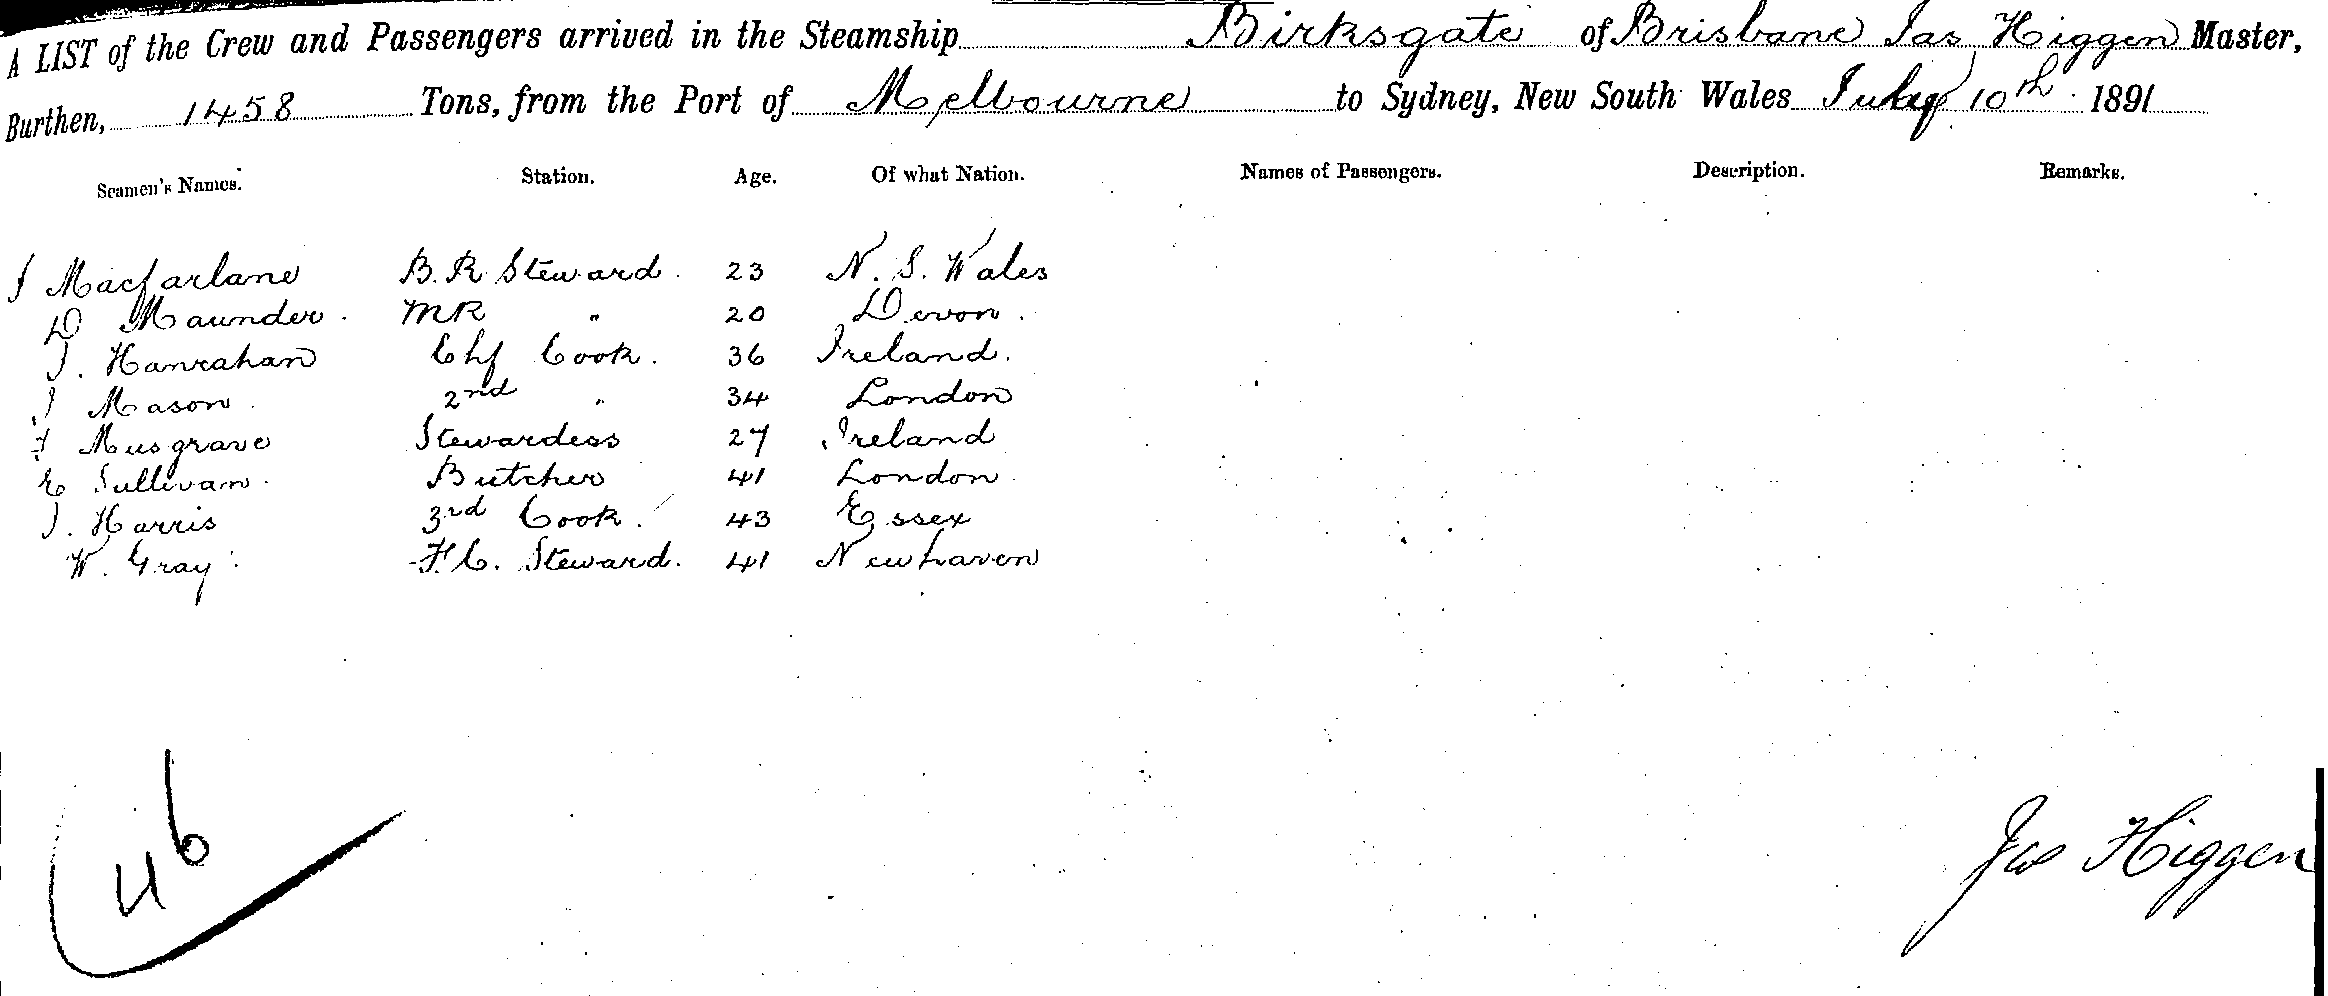 A LIST of the Crew and Passengers arrived in the Steamship Birksgate of Brisbane Jas Higgen Master,
Burthen, 1458 Tons, from the Port of Melbourne to Sydney, New South Wales July 10th 1891
Seamen's Names. Station. Age. Of what Nation. Names of Passengers. Description. Remarks.
J Macfarlane B. R. Steward. 23 N. S. Wales
D Maunder. MR " 20 Devon.
J. Hanrahan Chf Cook. 36 Ireland.
J Mason. 2nd " 34 London
F Musgrave Stewardess 27 Ireland
E Sullivan. Butcher 41 London
J. Harris 3rd Cook. 43 Essex
W. Gray F. C. Steward. 41 Newhaven
46
Jas Higgen